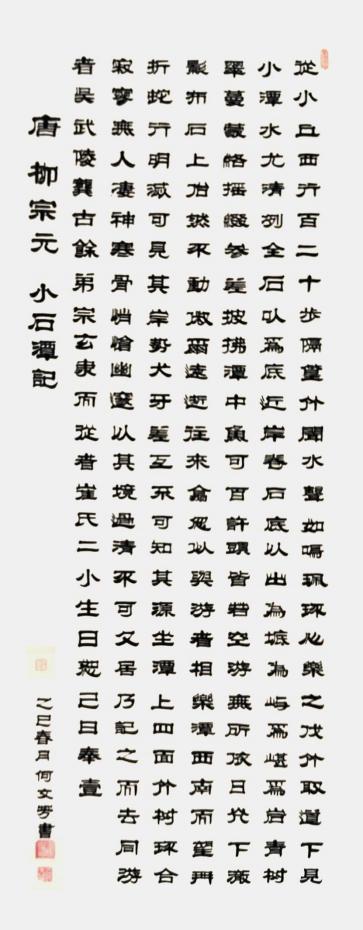 從小丘西行百二十步隔篁竹聞水聲如鳴珮環心樂之伐竹取道下見
小潭水尤清冽全石以爲底近岸卷石底以出為坻為嶼爲嵁爲岩青樹
翠蔓蒙絡搖綴參差披拂潭中魚可百許頭皆若空游無所依日光下澈
影布石上佁然不動俶爾遠逝往來翕忽似與游者相樂潭西南而望斗
折蛇行明滅可見其岸勢犬牙差互不可知其源坐潭上四面竹樹環合
寂寥無人凄神寒骨悄愴幽邃以其境過清不可久居乃記之而去同游
者吳武陵龔古餘弟宗玄隸而從者崔氏二小生曰恕己曰奉壹
唐柳宗元 小石潭記
乙巳春月何文書